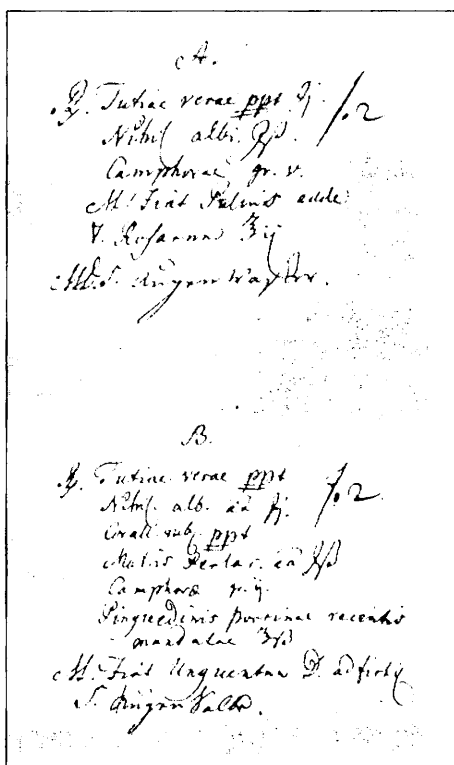 A.
℞. Tutiae verae ppt ʒj.
Nihil albi ʒß
Camphorae gr. v.
M. Fiat Pulvis adde
Rosarum ℥ij
M.D.S. Augenwasser.
B.
℞. Tutiae verae ppt
Nihil. alb. aa ʒj.
Corall rub ppt
Matris Perlar. aa ʒß
Camphorae gr. ij.
Pinguedinis porcinae recentis
℥ß
M. Fiat Unguentum D. ad fictil
S. Augen Salbe.